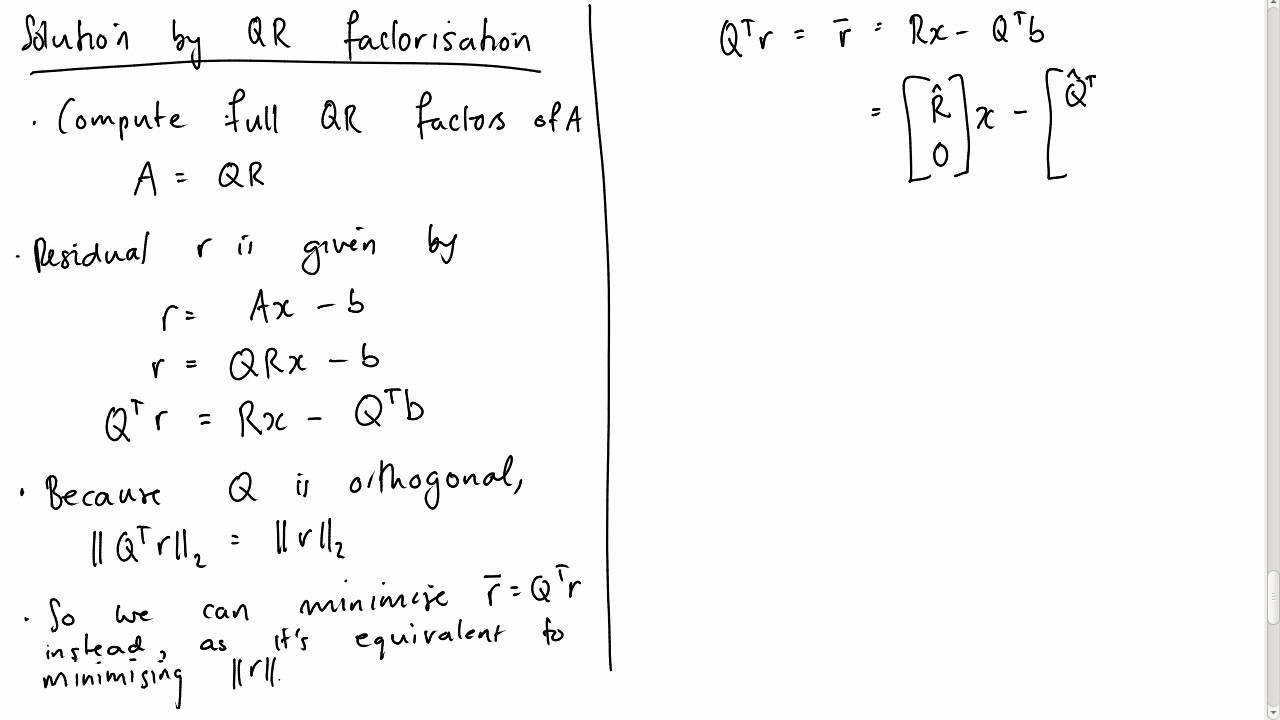 Solution by QR factorisation
· Compute full QR factors of A
A = QR
· Residual r is given by
r = Ax - b
r = QRx - b
Qᵀr = Rx - Qᵀb
· Because Q is orthogonal,
||Qᵀr||₂ = ||r||₂
· So we can minimise r̄ = Qᵀr
instead, as it's equivalent to
minimising ||r||.
Qᵀr = r̄ = Rx - Qᵀb
= [R̂ x - [Q̂ᵀ
0]